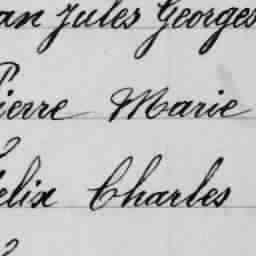 an Jules Georges
Pierre Marie
elix Charles